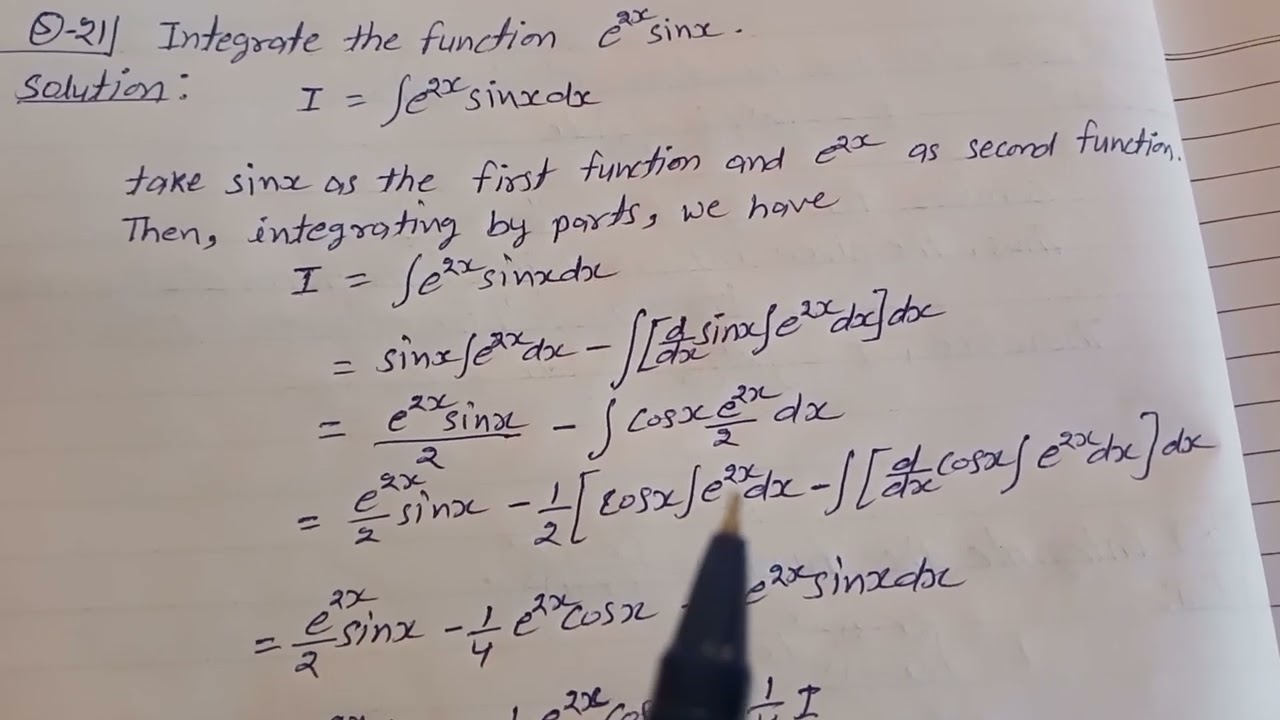 Q-21| Integrate the function e^{2x} sinx.
Solution: I = ∫e^{2x} sinxdx
take sinx as the first function and e^{2x} as second function.
Then, integrating by parts, we have
I = ∫e^{2x} sinxdx
= sinx∫e^{2x}dx − ∫[d/dx sinx∫e^{2x}dx]dx
= e^{2x} sinx/2 − ∫ cosx e^{2x}/2 dx
= e^{2x}/2 sinx − 1/2 [cosx∫e^{2x}dx − ∫[d/dx cosx∫ e^{2x}dx]dx
= e^{2x}/2 sinx − 1/4 e^{2x}cosx e^{2x}sinxdx
e^{2x} I